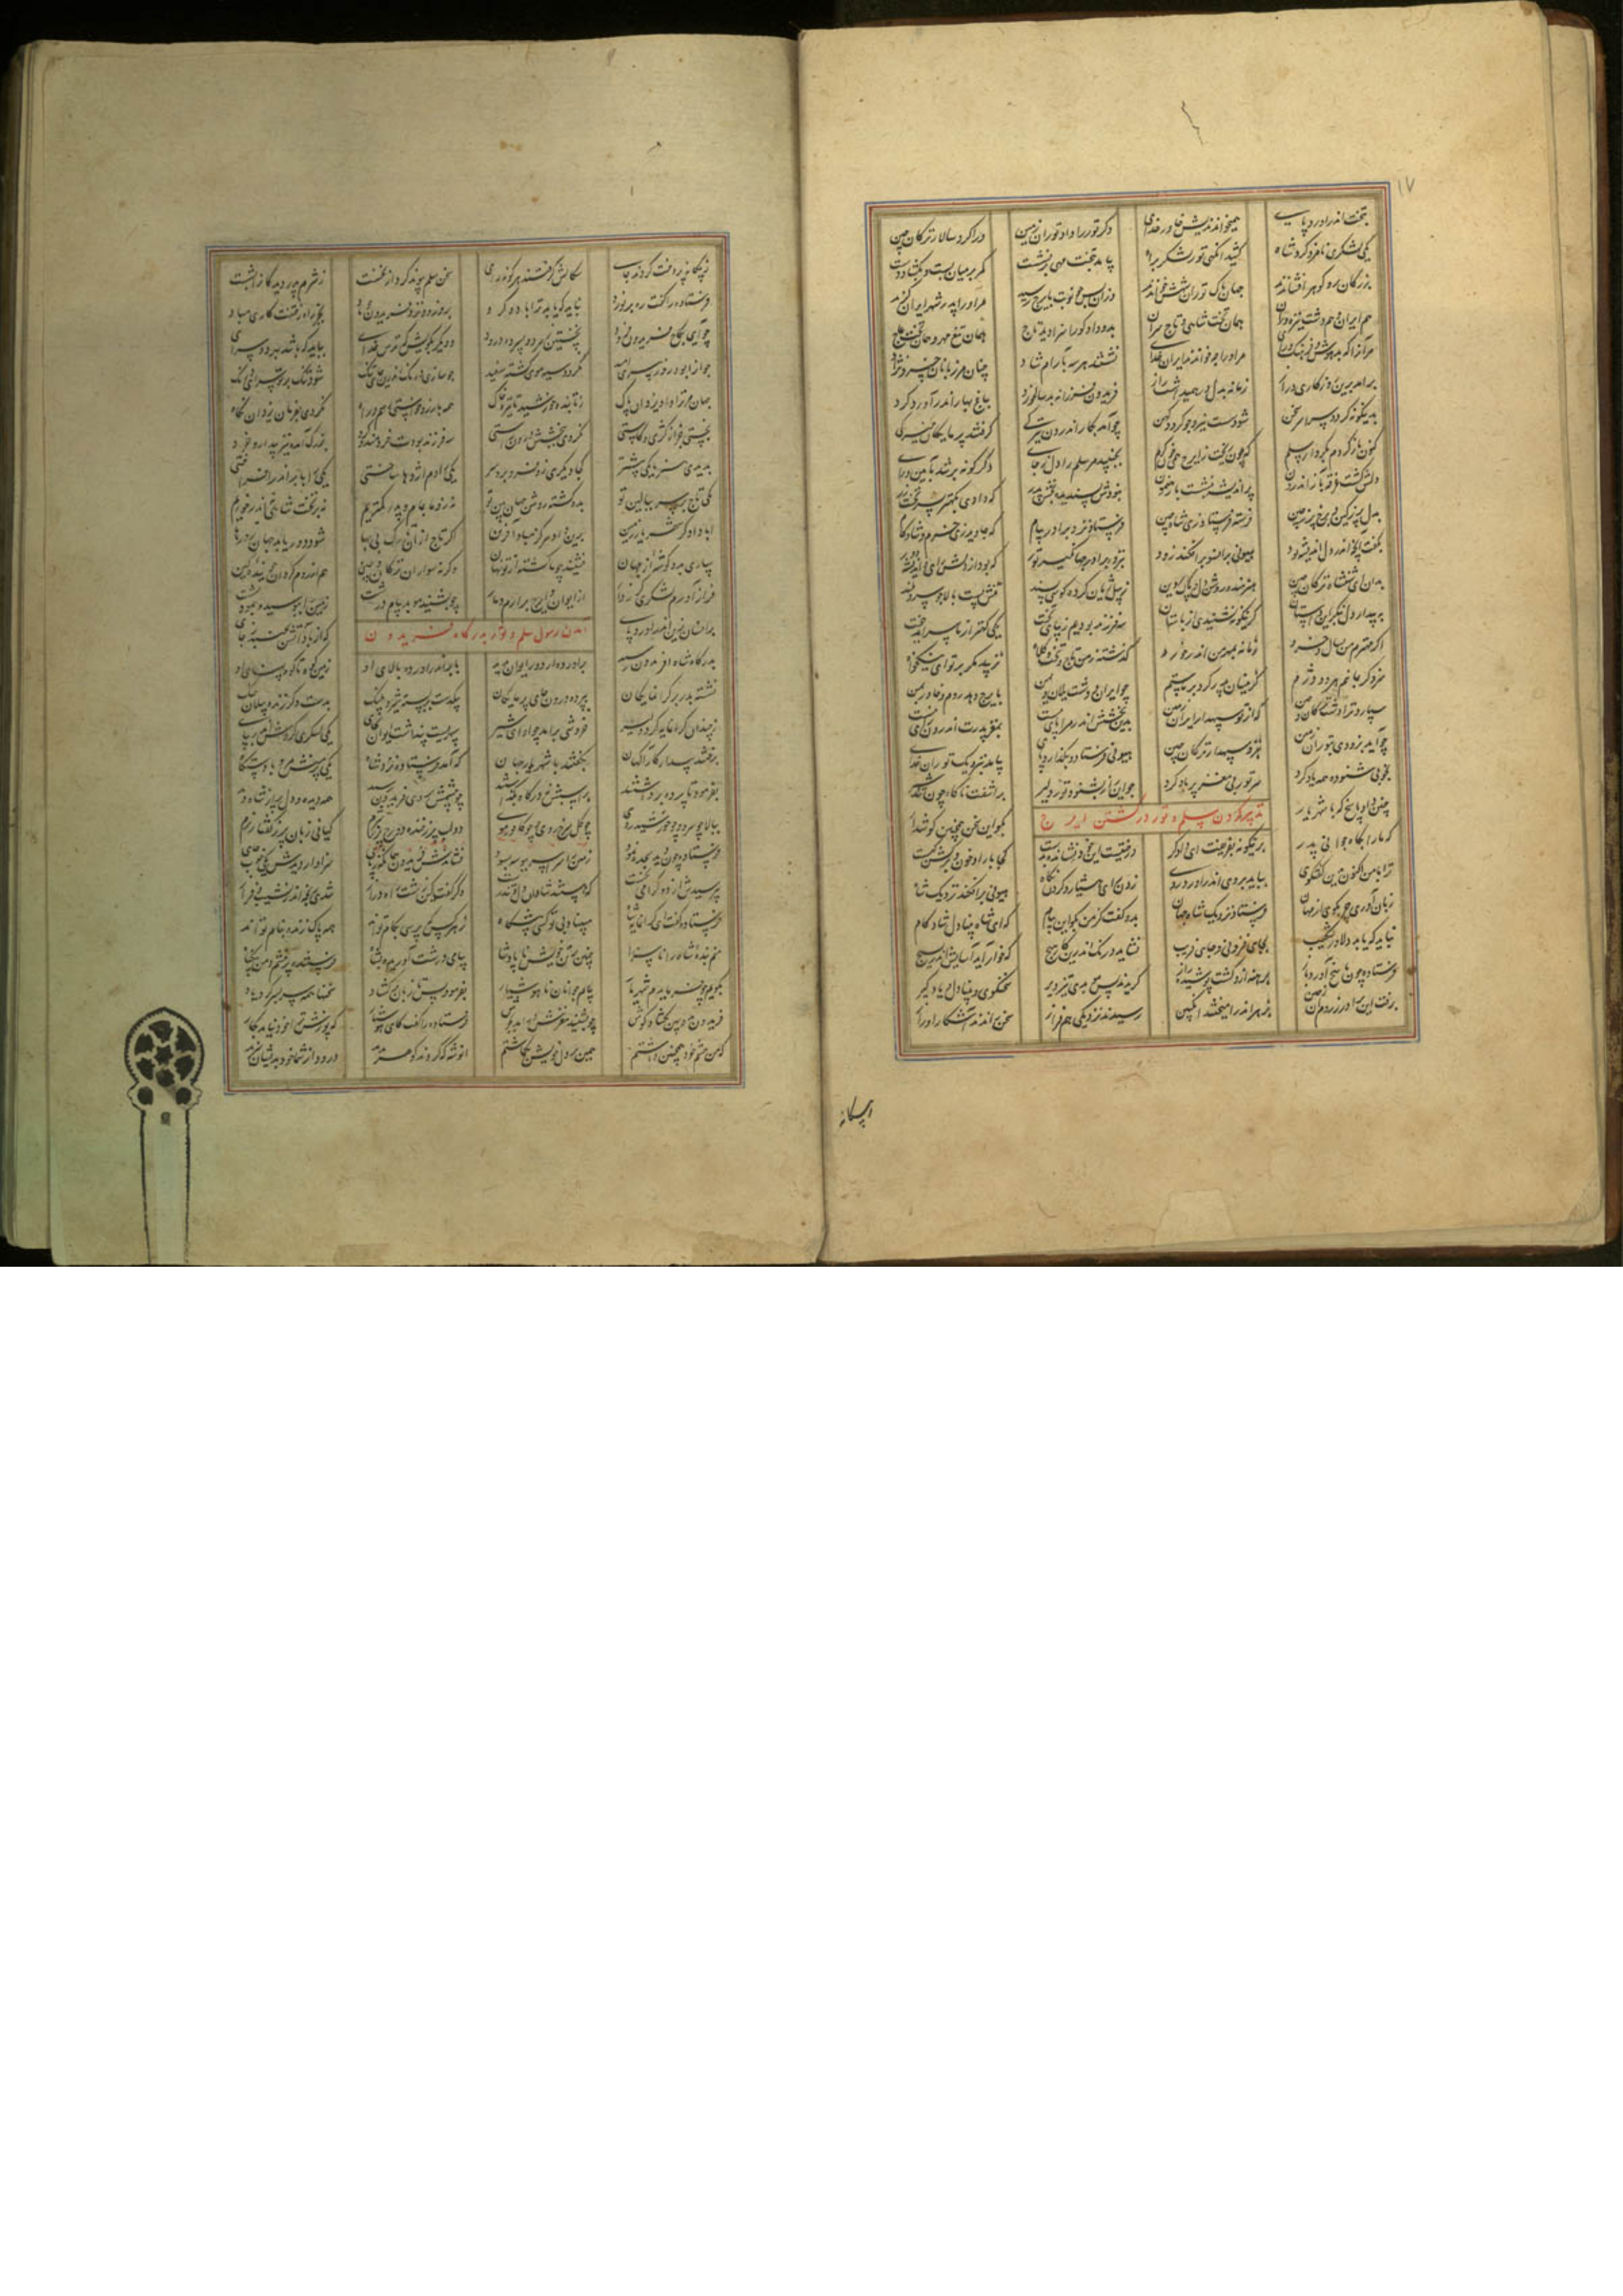 ۱۷
بتخت اندر آورد پای همیخواندندیش خاور خدای دگر تور را داد توران زمین ورا کرد سالار ترکان و چین
یکی لشکری نامزد کرد شاه کشید آنگهی تور لشکر براه بیامد بتخت مهی برنشست کمر بر میان بست و بگشاد دست
بزرگان برو گوهر افشاندند جهان پاک توران شهش خواندند وزان پس چو نوبت بایرج رسید مر او را پدر شهر ایران گزید
هم ایران و هم دشت نیزه وران همان تخت شاهی و تاج سران بدو داد کورا سزا دید تاج همان تیغ و مهر و همان تخت عاج
مر آنرا که بد هوش و فرهنگ و رای مر او را چه خواندند ایران خدای نشستند هر سه بآرام شاد چنان مرزبانان خسرو نژاد
برآمد برین روزگاری دراز زمانه بدل در همی داشت راز فریدون فرزانه شد سالخورد بباغ بهار اندر آورد گرد
بدینگونه گردد سراسر سخن شود سست نیرو چو گردد کهن چو آمد بکار اندرون تیرگی گرفتند پرمایگان خیرگی
کنون بازگردم بکردار سلم که چون ایرج بجنبید مر سلم را دل ز جای دگرگونه تر شد بآیین و رای
دلش گشت غرقه بآز اندرون پر اندیشه بنشست با رهنمون نبودش پسندیده بخش پدر که داد او بکهتر پسر تخت زر
بدل پر ز کین شد برخ پر ز چین فرسته فرستاد زی شاه چین فرستاد نزد برادر پیام که جاوید زی خرم و شادکام
بگفت آنچه اندر دل اندیشه بود هیونی برافکند زود بنزد برادر جهانگیر تور که بود از دلش رای اندیشه دور
بدان ای شهنشاه ترکان و چین هنرمند و روشن دل و پاک دین ز نیکی زیان کرده گویی پسند منش پست و بالا چو سرو بلند
به بیدار دل بنگر این داستان کزینگونه نشنیدی از باستان سه فرزند بودیم زیبای تخت یکی کهتر از ما برآمد ببخت
اگر مهترم من بسال و خرد زمانه بمهر من اندر خورد گذشته ز من تاج و تخت و کلاه نزیبد مگر بر تو ای نیکخواه
سزد گر بمانیم هر دو دژم کزینسان پدر کرد بر ما ستم چو ایران و دشت یلان و یمن بایرج دهد روم و خاور بمن
سپارد ترا دشت ترکان و چین که از تو سپهدار ایران زمین بدین بخشش اندر مرا پای نیست بمغز پدرت اندرون رای نیست
چو آمد بزودی بتوران زمین بنزد سپهدار ترکان و چین هیونی فرستاد و بگذارد پای بیامد بنزدیک توران خدای
بخوبی شنوده همه یاد کرد سر تور بی مغز پر باد کرد چو این راز بشنود تور دلیر برآشفت ناگاه چون تند شیر
چنین داد پاسخ که با شهریار بگو این سخن همچنین گوش دار
تدبیر کردن سلم و تور در کشتن ایرج
که ما را بگاه جوانی پدر برینگونه بفریفت ای دادگر درختیست این خود نشانده بدست کجا بار او خون و برگش کبست
ترا با من اکنون بدین گفتگوی بباید بروی اندر آورد روی زدن رای هشیار و کردن نگاه هیونی برافکند نزدیک شاه
زبان آوری چربگوی از مهان فرستاد نزدیک شاه جهان بدو گفت کز من بگو این پیام که ای شاه بینادل شادکام
نباید که یابد دلاور شکیب بجای فزونی و جای فریب نشاید درنگ اندرین کار هیچ که خوار آید آسایش اندر بسیچ
فرستاده چون پاسخ آورد باز برهنه شد از گشت پوشیده راز گزیدند پس موبدی تیزویر سخنگوی و بینادل و یادگیر
برفت این برادر ز روم آن ز چین بزهر اندر آمیختند انگبین رسیدند نزدیکی هم فراز سخن راندند آشکارا و راز
ز بیگانه
ز بیگانه پردخت کردند جای سگالش گرفتند هر گونه رای سخن سلم پیوند کرد از نخست ز شرم پدر دیدگان را بشست
فرستاده را گفت ره بر نورد نباید که یابد ترا باد و گرد برو زود نزد فریدون چو باد بجز راه رفتنت کاری مباد
چو آیی بکاخ فریدون فرود نخستین ز هر دو پسر ده درود و دیگر بگویش که ترس خدای بباید که باشد بهر دو سرای
جوانرا بود روز پیری امید نگردد سیه موی گشته سفید چه سازی درنگ اندرین جای تنگ شود تنگ بر تو سرای درنگ
جهان مر ترا داد یزدان پاک ز تابنده خورشید تا تیره خاک همه بآرزو خواستی رسم و راه نکردی بفرمان یزدان نگاه
نجستی بجز کژی و کاستی نکردی ببخشش درون راستی سه فرزند بودت خردمند و گرد بزرگ آمدت نیز پیدا ز خرد
ندیدی هنرهای یکی بیشتر کجا دیگری زو فرو برد سر یکی را دم اژدها ساختی یکی را بابر اندر افراختی
یکی تاج بر سر ببالین تو بدو گشته روشن جهان بین تو نه ما زو بمام و پدر کمتریم نه بر تخت شاهی نه اندر خوریم
ایا دادگر شهریار زمین برین داد هرگز مباد آفرین اگر تاج از آن تارک بی بها شود دور و یابد جهان زو رها
سپاری بدو گوشه از جهان نشیند چو ما گشته از تو نهان وگرنه سواران ترکان و چین هم از روم گردان جوینده کین
فراز آورم لشکری گرزدار از ایوان و ایرج برآرم دمار چو بشنید موبد پیام درشت زمین را ببوسید و بنمود پشت
بر آنسان بزین اندر آورد پای که از باد آتش بجنبد ز جای
آمدن رسول سلم و تور بدرگاه فریدون
بدرگاه شاه آفریدون رسید برآورده دور ایوان بدید بابر اندر آورده بالای او زمین کوه تا کوه پهنای او
نشسته بدر بر گرانمایگان بپرده درون جای پرمایگان بیکدست بربسته شیر و پلنگ بدست دگر ژنده پیلان جنگ
ز چندان گرانمایه گرد دلیر خروشی برآمد چو آوای شیر سپهریست پنداشت ایوان بجای یکی لشکری گردش اندر بپای
برفتند بیدار کارآگهان بگفتند با شهریار جهان که آمد فرستاده نزد شاه یکی پرمنش مرد با دستگاه
بفرمود تا پرده برداشتند بر اسپش ز درگاه بگذاشتند چو چشمش بروی فریدون رسید همه دیده و دل پر از شاه دید
ببالا چو سرو و چو خورشید روی چو گل سرخ روی و چو کافور موی دو لب پر ز خنده دو رخ پر ز شرم کیانی زبان پر ز گفتار نرم
فرستاده چون دید سجده نمود زمین را سراسر ببوسه بسود نشاندش فریدون سزاوار دیدش یکی خوب جای
بپرسیدش از دو گرامی نخست که هستند شادان دل و تندرست دگر گفت کز دشت و راه دراز شدی رنجه اندر نشیب و فراز
فرستاده گفت ای گرانمایه شاه مبیناد بی تو کسی پیشگاه ز هر کس که پرسی بکام تواند همه پاک زنده بنام تواند
منم بنده شاه را ناسزا چنین بر تن خویش ناپارسا پیامی درشت آوریده بشاه فرستنده پر خشم و من بیگناه
بگویم چو فرمایدم شهریار پیام جوانان ناهوشیار بفرمود پس تا زبان برگشاد سخنها همه سربسر کرد یاد
فریدون بدو پهن بگشاد گوش چو بشنید مغزش برآمد بجوش فرستاده را گفت کای هوشیار که پوزشت خود نیاید بکار
که من چشم خود همچنین داشتم همین بر دل خویش بگماشتم انوشه که کردند گوهر درود از شما خود